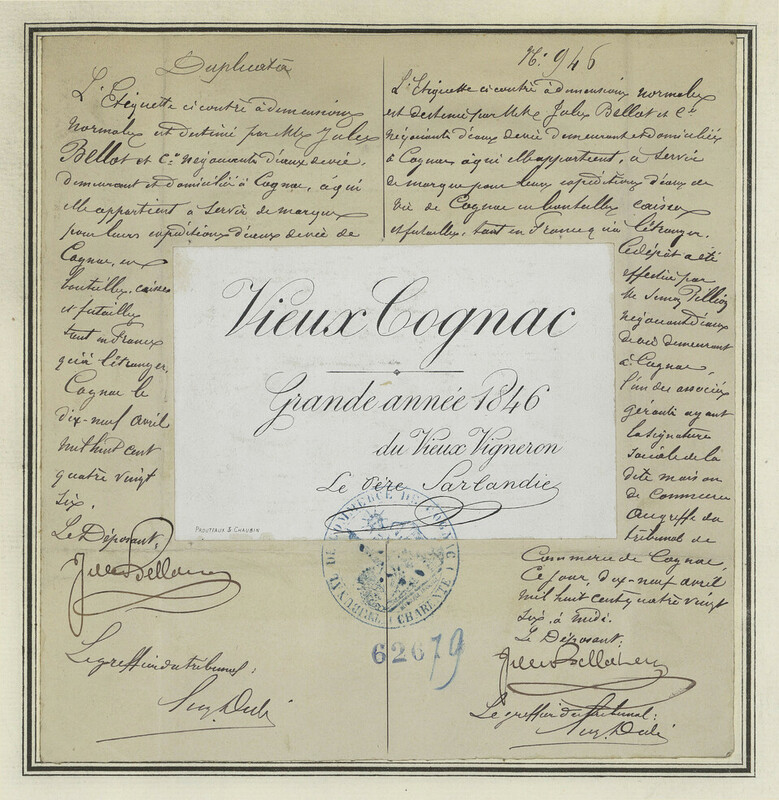 Duplicata
L'Etiquette ci contre à dimensions
normales est destiné par MM. Jules
Bellot et Cie. négociants d'eaux de vie,
demeurant et domicilié à Cognac, à qui
elle appartient à servir de marque
pour leurs expéditions d'eaux de vie de
Cognac, en
bouteilles, caisses
et futailles
tant en France
qu'à l'étranger.
Cognac le
dix-neuf avril
mil huit cent
quatre vingt
six.
Le Déposant,
Jules Bellot
Le greffier du tribunal:
No. 946
L'Etiquette ci contre à dimensions normales
est destiné par MM. Jules Bellot et Cie
négociants d'eaux de vie demeurant et domiciliés
à Cognac à qui elle appartient, à servir
de marque pour leurs expéditions d'eaux de
vie de Cognac en bouteilles caisses
et futailles, tant en France qu'à l'étranger.
Ce dépôt a été
effectué par
négociant d'eaux
de vie demeurant
à Cognac,
l'un des associés
gérants ayant
la signature
sociale de la
dite maison
de Commerce
au greffe du
tribunal de
Commerce de Cognac,
Ce jour, dix-neuf avril
mil huit cent quatre vingt
six, à midi.
Le Déposant:
Jules Bellot
Le greffier du tribunal:
Vieux Cognac
Grande année 1846
du Vieux Vigneron
Le Père Sarlandie
PROUTEAUX & CHAUBIN
TRIBUNAL DE COMMERCE DE COGNAC (CHARENTE)
62679